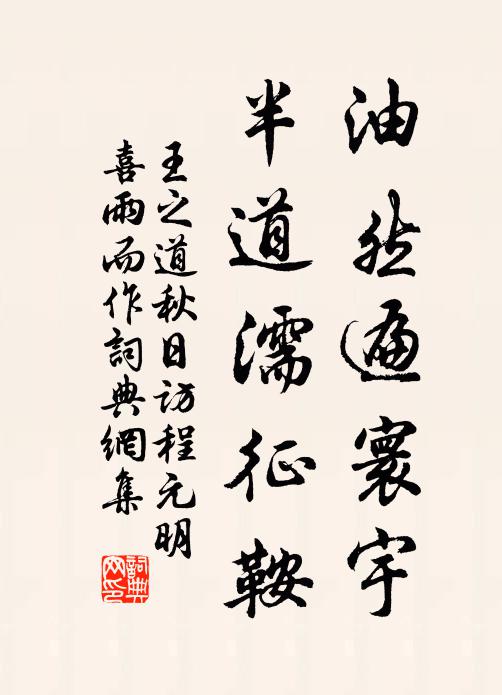 油然遍寰宇
半道濡征鞍
王之道秋日访程元明
喜雨而作詞典網集
詞典网印